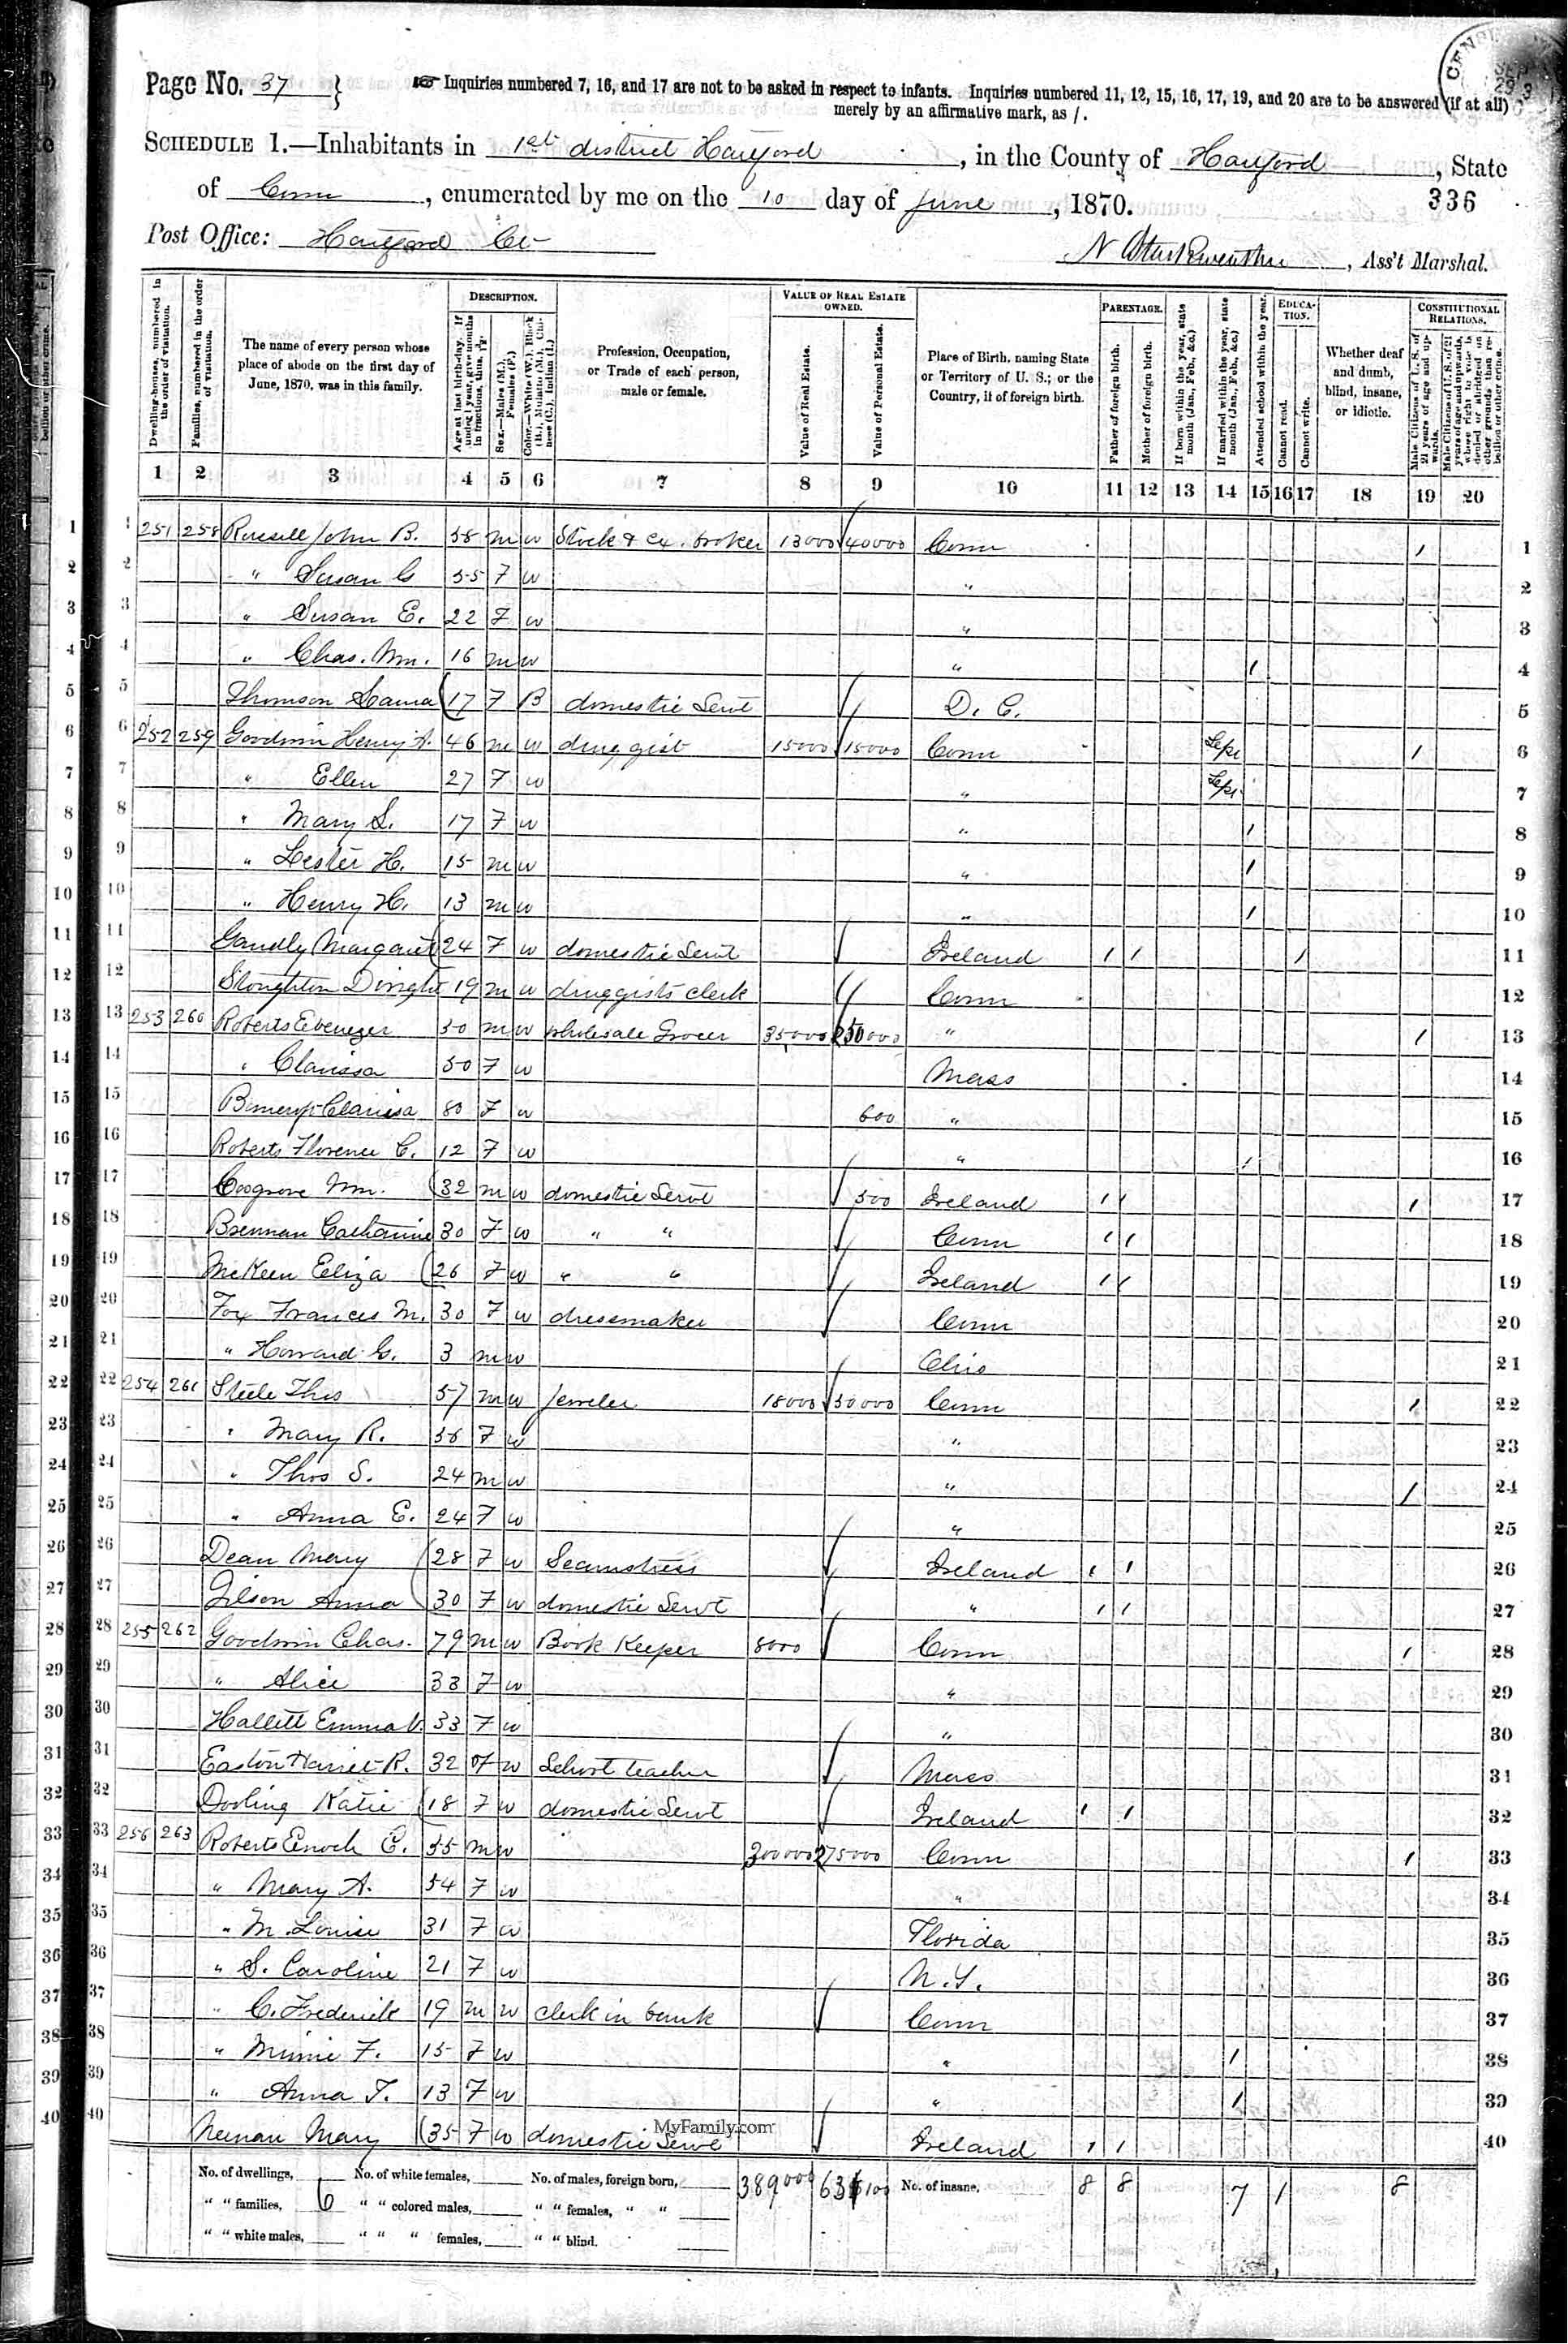 Page No. 37 } Inquiries numbered 7, 16, and 17 are not to be asked in respect to infants. Inquiries numbered 11, 12, 15, 16, 17, 19, and 20 are to be answered (if at all)
merely by an affirmative mark, as /.
SCHEDULE 1.—Inhabitants in 1st district Hartford, in the County of Hartford, State
of Conn, enumerated by me on the 10 day of June, 1870.
336
Post Office: Hartford Ct
N, Ass't Marshal.
Dwelling-houses, numbered in the order of visitation.
Families, numbered in the order of visitation.
The name of every person whose place of abode on the first day of June, 1870, was in this family.
DESCRIPTION.
Age at last birthday. If under 1 year, give months in fractions, thus, 3/12.
Sex.—Males (M.), Females (F.)
Color.—White (W.), Black (B.), Mulatto (M.), Chinese (C.), Indian (I.)
Profession, Occupation, or Trade of each person, male or female.
VALUE OF REAL ESTATE OWNED.
Value of Real Estate.
Value of Personal Estate.
Place of Birth, naming State or Territory of U. S.; or the Country, if of foreign birth.
PARENTAGE.
Father of foreign birth.
Mother of foreign birth.
If born within the year, state month (Jan., Feb., &c.)
If married within the year, state month (Jan., Feb., &c.)
Attended school within the year.
EDUCATION.
Cannot read.
Cannot write.
Whether deaf and dumb, blind, insane, or idiotic.
CONSTITUTIONAL RELATIONS.
Male Citizens of U. S. of 21 years of age and upwards.
Male Citizens of U. S. of 21 years of age and upwards, where right to vote is denied or abridged on other grounds than rebellion or other crime.
1 2 3 4 5 6 7 8 9 10 11 12 13 14 15 16 17 18 19 20
1 251 258 Russell John B. 58 m w Stock & Ex. broker 13000 40000 Conn / 1
2 " Susan G 55 F w " 2
3 " Susan E. 22 F w " 3
4 " Chas. Wm. 16 m w " / 4
5 Thomson Laura 17 F B domestic Servt D. C. 5
6 252 259 Goodwin Henry A. 46 m w druggist 15000 15000 Conn Sept / 6
7 " Ellen 27 F w " Sept 7
8 " Mary S. 17 F w " / 8
9 " Lester H. 15 m w " / 9
10 " Henry H. 13 m w " / 10
11 Margaret 24 F w domestic Servt Ireland / / / 11
12 Stoughton Dwight 19 m w druggists clerk Conn 12
13 253 260 Roberts Ebenezer 50 m w wholesale Grocer 35000 250000 " / 13
14 " Clarissa 50 F w Mass 14
15 Clarissa 80 F w 600 " 15
16 Roberts Florence C. 12 F w " / 16
17 Cosgrove Wm. 32 m w domestic Servt 500 Ireland / / / 17
18 Brennan Catharine 30 F w " " Conn / / 18
19 McKeen Eliza 26 F w " " Ireland / / 19
20 Fox Frances M. 30 F w dressmaker Conn 20
21 " Howard G. 3 m w Ohio 21
22 254 261 Steele Thos 57 m w Jeweler 18000 50000 Conn / 22
23 " Mary R. 56 F w " 23
24 " Thos S. 24 m w " / 24
25 " Anna E. 24 F w " 25
26 Dean Mary 28 F w Seamstress Ireland / / 26
27 Gilson Anna 30 F w domestic Servt " / / 27
28 255 262 Goodwin Chas. 79 m w Book Keeper 8000 Conn / 28
29 " Alice 33 F w " 29
30 Hallett Emma V. 33 F w " 30
31 Easton Harriet R. 32 F w School teacher Mass 31
32 Dooling Katie 18 F w domestic Servt Ireland / / 32
33 256 263 Roberts Enoch C. 55 m w 300000 275000 Conn / 33
34 " Mary A. 54 F w " 34
35 " M. Louise 31 F w Florida 35
36 " S. Caroline 21 F w N.Y. 36
37 " C. Frederick 19 m w clerk in bank Conn 37
38 " Minnie F. 15 F w " / 38
39 " Anna T. 13 F w " / 39
40 Neenan Mary 35 F w domestic Servt Ireland / / 40
MyFamily.com
No. of dwellings, No. of white females, No. of males, foreign born, 389000 631100 No. of insane, 8 8 7 1 8
" " families, 6 " " colored males, " " females, " "
" " white males, " " " females, " " blind.